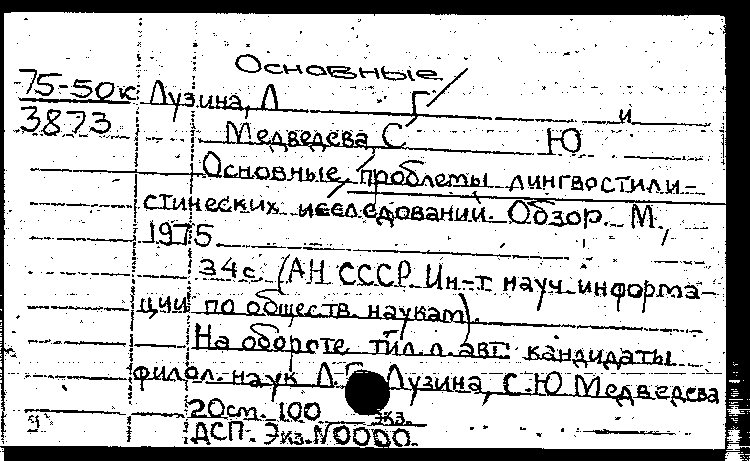 Основные
75-50к Лузина, Л Г и
3873 Медведева, С Ю
Основные проблемы лингвостили-
стических исследований. Обзор. М.,
1975
34 с. (АН СССР. Ин-т науч. информа-
ции по обществ. наукам).
На обороте тит. л. авт: кандидаты
филол. наук Л.Г. Лузина, С.Ю Медведева
20см. 100 экз.
ДСП. Экз. N0000.